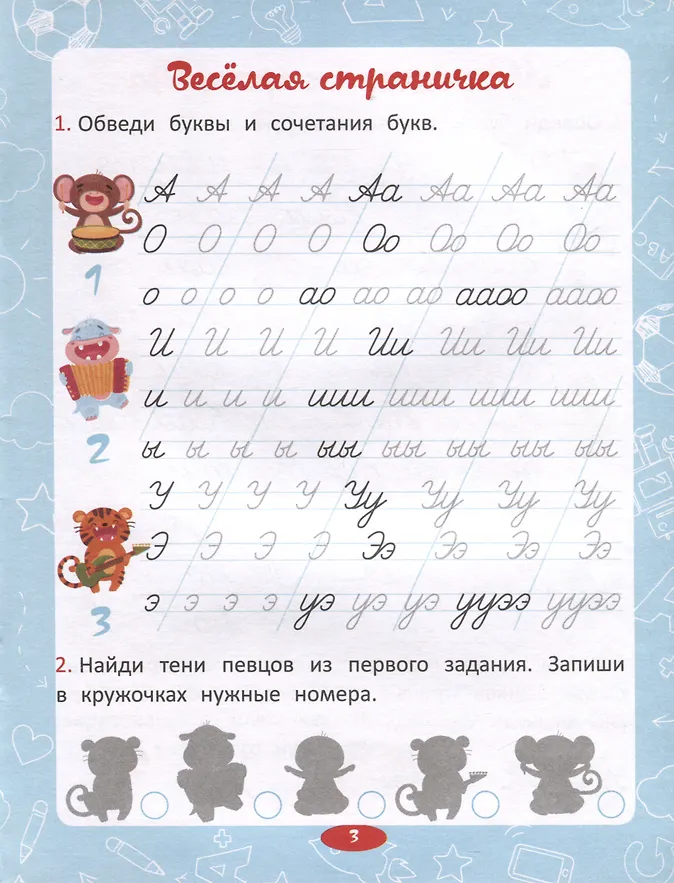 Весёлая страничка
1. Обведи буквы и сочетания букв.
А А А А Аа Аа Аа Аа
О О О О Оо Оо Оо Оо
1
о о о о ао ао ао ааоо ааоо
И И И И Ии Ии Ии Ии
и и и и иии иии иии иии иии
2
ы ы ы ы ыы ыы ыы ыы ыы
У У У У Уу Уу Уу Уу
Э Э Э Э Ээ Ээ Ээ Ээ
3
э э э э уэ уэ уэ ууээ ууээ
2. Найди тени певцов из первого задания. Запиши
в кружочках нужные номера.
3